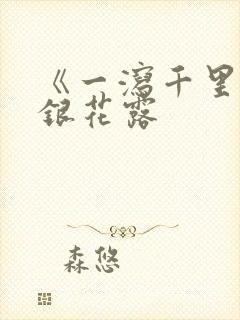 《一瀉千里
銀花露
森悠